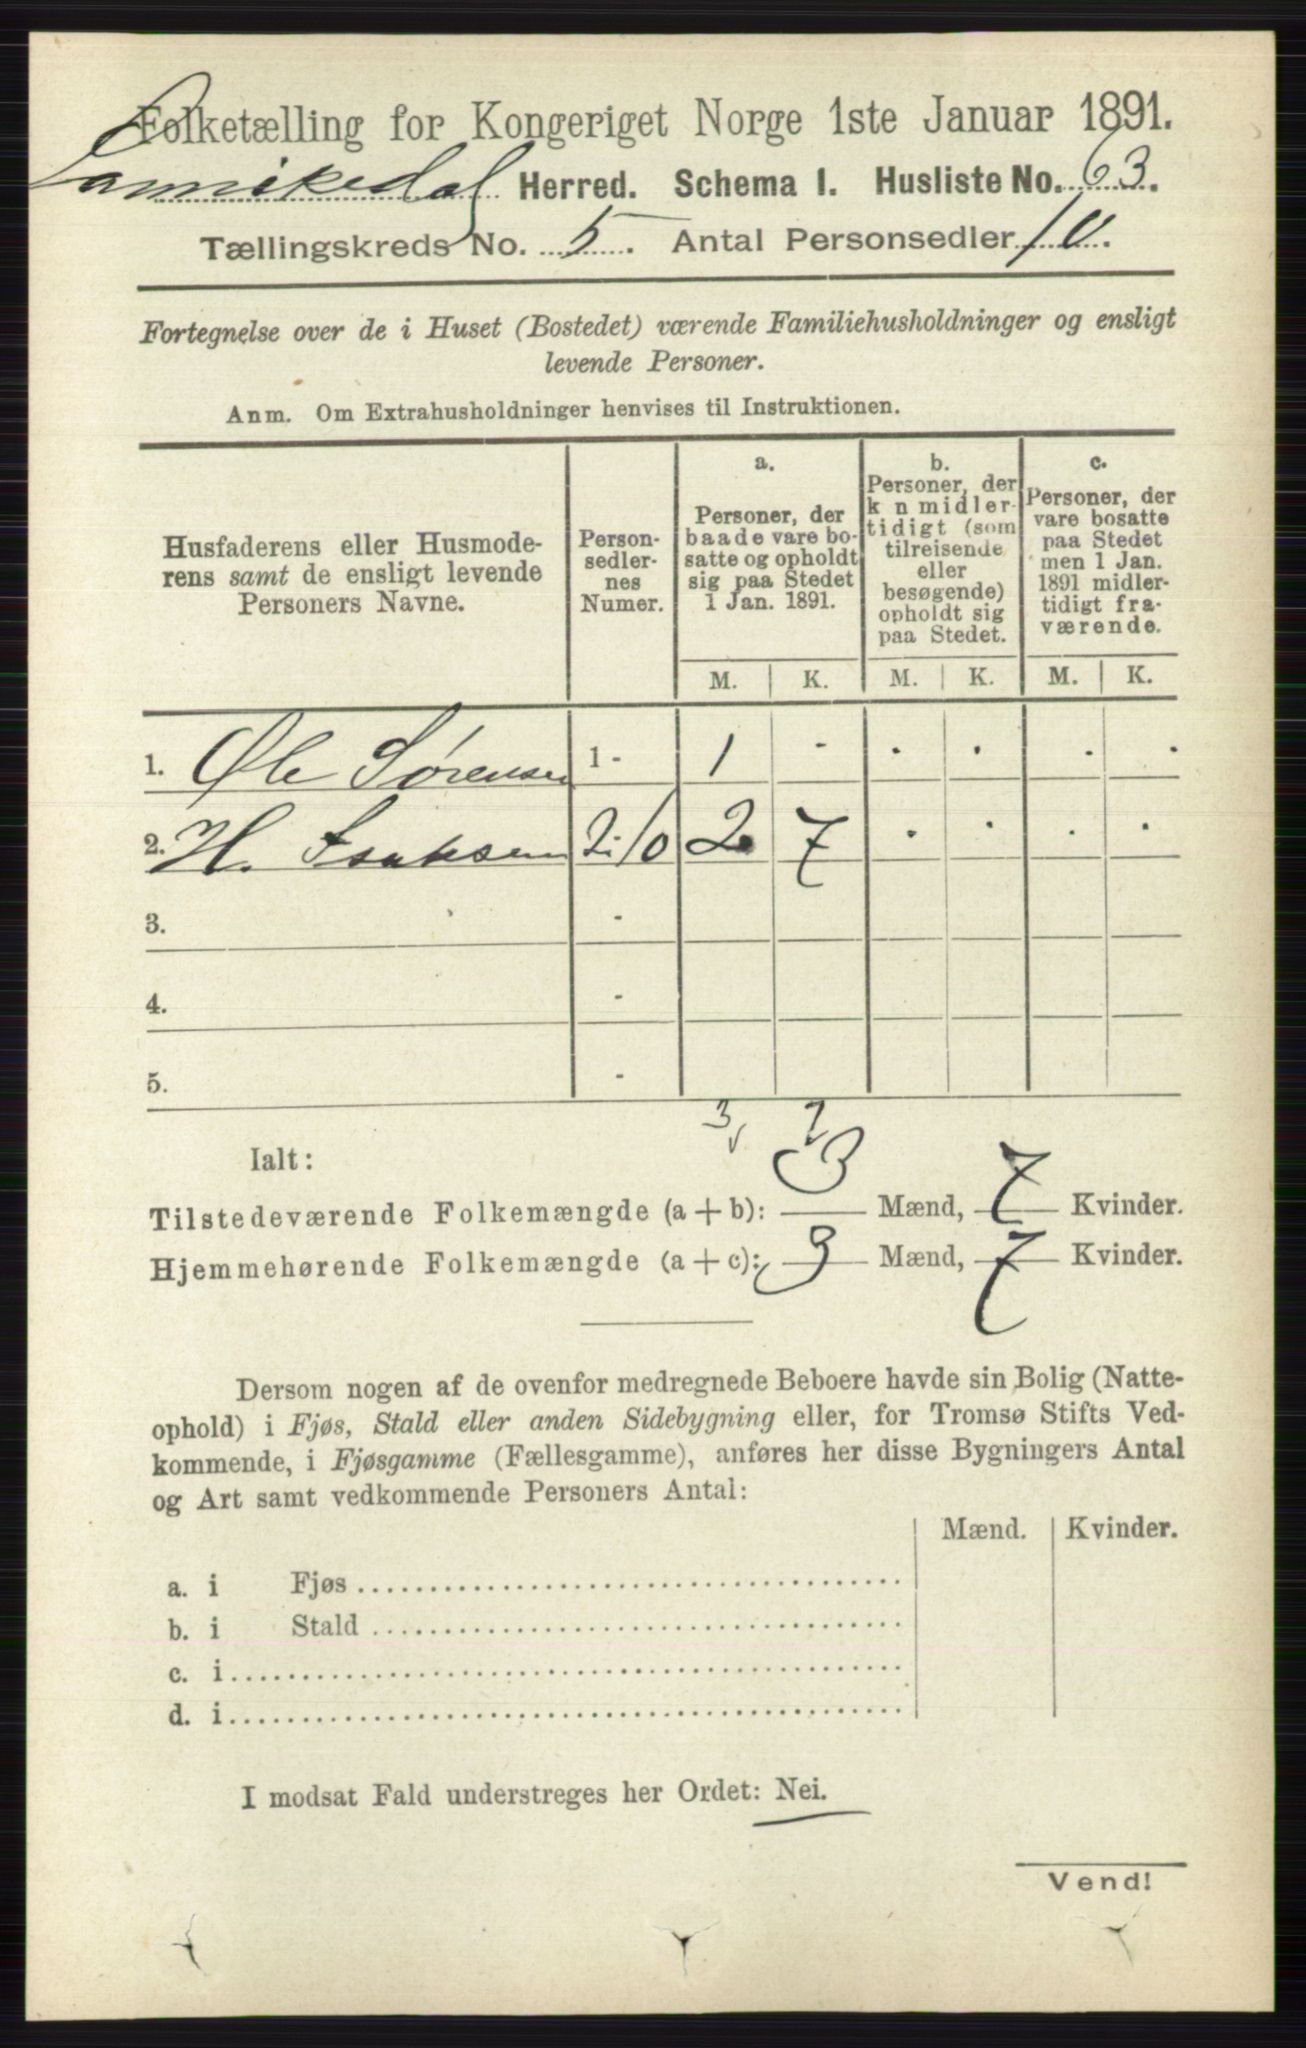 Folketælling for Kongeriget Norge 1ste Januar 1891.
Sannikedal Herred. Schema I. Husliste No. 63.
Tællingskreds No. 5. Antal Personsedler 10.
Fortegnelse over de i Huset (Bostedet) værende Familiehusholdninger og ensligt
levende Personer.
Anm. Om Extrahusholdninger henvises til Instruktionen.
Husfaderens eller Husmode-
rens samt de ensligt levende
Personers Navne.
Person-
sedler-
nes
Numer.
a.
Personer, der
baade vare bo-
satte og opholdt
sig paa Stedet
1 Jan. 1891.
b.
Personer, der
k n midler-
tidigt (som
tilreisende
eller
besøgende)
opholdt sig
paa Stedet.
c.
Personer, der
vare bosatte
paa Stedet
men 1 Jan.
1891 midler-
tidigt fra-
værende.
M. K. M. K. M. K.
1. Ole Sørensen 1 - 1 - . . . .
2. H. Isaksen 2-10 2 7 . . . .
3. -
4. -
5. -
3 7
Ialt:
Tilstedeværende Folkemængde (a + b): 3 Mænd, 7 Kvinder.
Hjemmehørende Folkemængde (a + c): 3 Mænd, 7 Kvinder.
Dersom nogen af de ovenfor medregnede Beboere havde sin Bolig (Natte-
ophold) i Fjøs, Stald eller anden Sidebygning eller, for Tromsø Stifts Ved-
kommende, i Fjøsgamme (Fællesgamme), anføres her disse Bygningers Antal
og Art samt vedkommende Personers Antal:
Mænd. Kvinder.
a. i Fjøs
b. i Stald
c. i
d. i
I modsat Fald understreges her Ordet: Nei.
Vend!